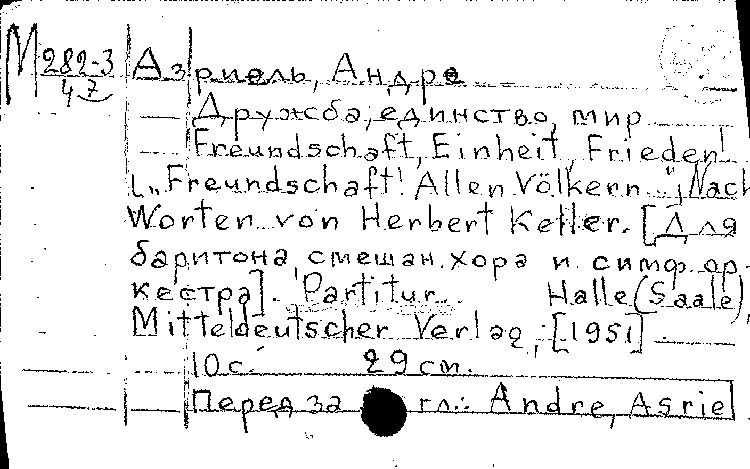 М 282-3 Азриель, Андре
47
Дружба, единство, мир
Freundschaft, Einheit, Frieden!
[„Freundschaft! Allen Völkern..."] Nach
Worten von Herbert Keller. [Для
баритона, смешан. хора и симф. ор-
кестра]. Partitur. Halle (Saale),
Mitteldeutscher Verlag, [1951]
10 с. 29 см.
Перед загл.: Andre, Asriel